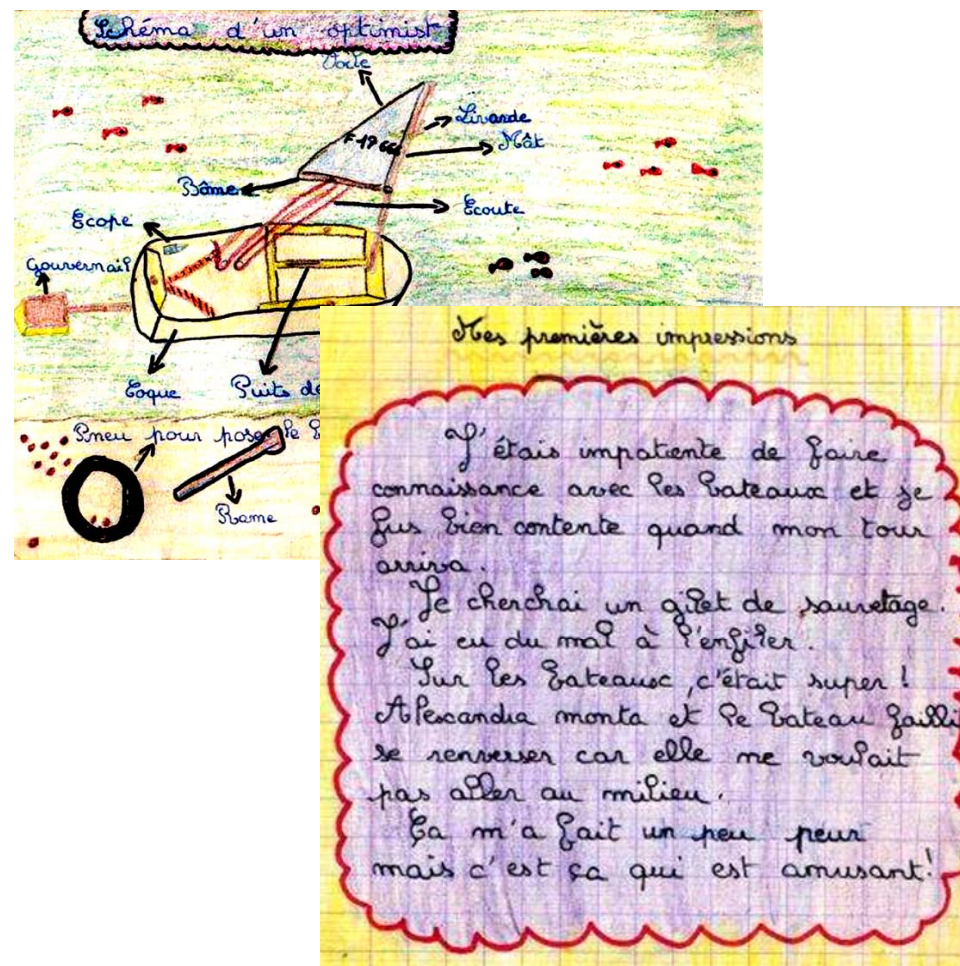 Schéma d'un optimist
Voile
Livarde
F-1766
Mât
Bôme
Ecoute
Ecope
Gouvernail
Coque
Puits de
Pneu pour poser le
Rame
Mes premières impressions
J'étais impatiente de faire
connaissance avec les bateaux et je
fus bien contente quand mon tour
arriva.
Je cherchai un gilet de sauvetage.
J'ai eu du mal à l'enfiler.
Sur les bateaux, c'était super !
Alexandra monta et le bateau failli
se renverser car elle ne voulait
pas aller au milieu.
Ça m'a fait un peu peur
mais c'est ça qui est amusant!